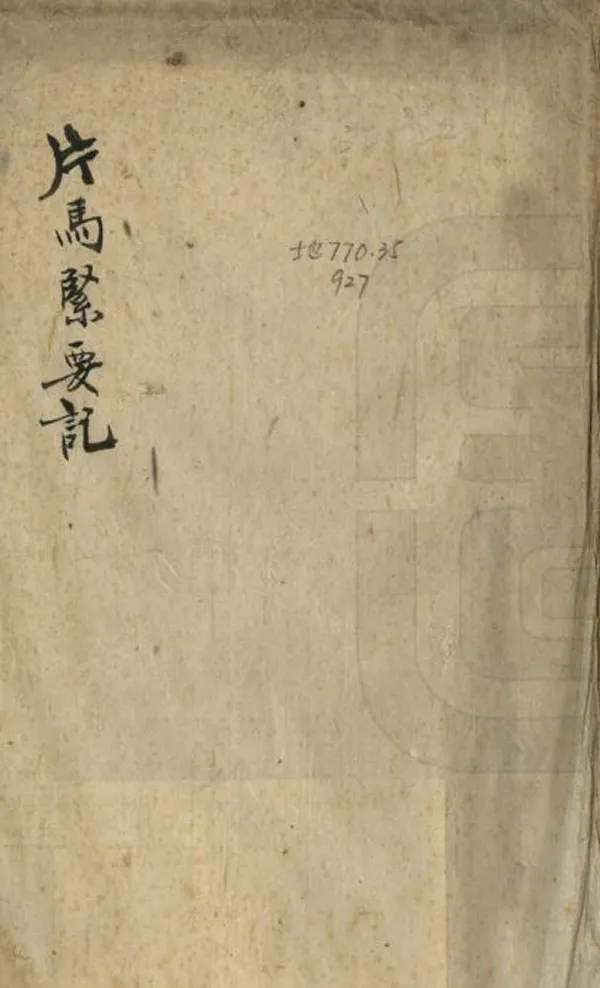 片馬緊要記
地770.35
927